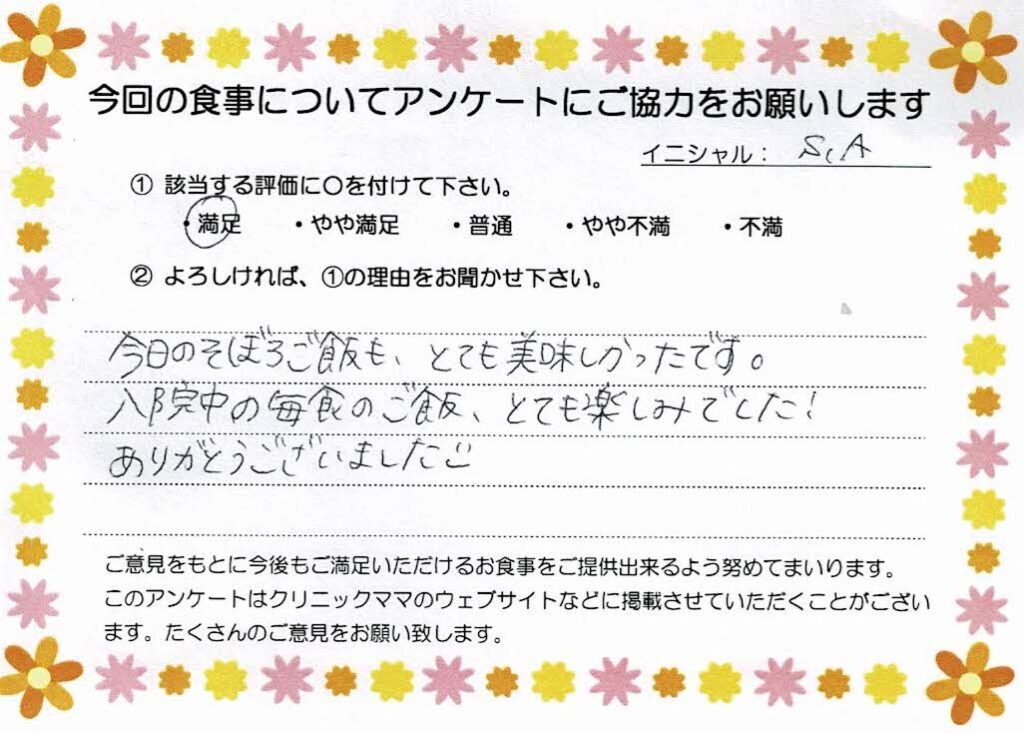 今回の食事についてアンケートにご協力をお願いします
イニシャル： S.A
① 該当する評価に〇を付けて下さい。
・満足 ・やや満足 ・普通 ・やや不満 ・不満
② よろしければ、①の理由をお聞かせ下さい。
今日のそぼろご飯も、とても美味しかったです。
入院中の毎食のご飯、とても楽しみでした！
ありがとうございました
ご意見をもとに今後もご満足いただけるお食事をご提供出来るよう努めてまいります。
このアンケートはクリニックママのウェブサイトなどに掲載させていただくことがござい
ます。たくさんのご意見をお願い致します。